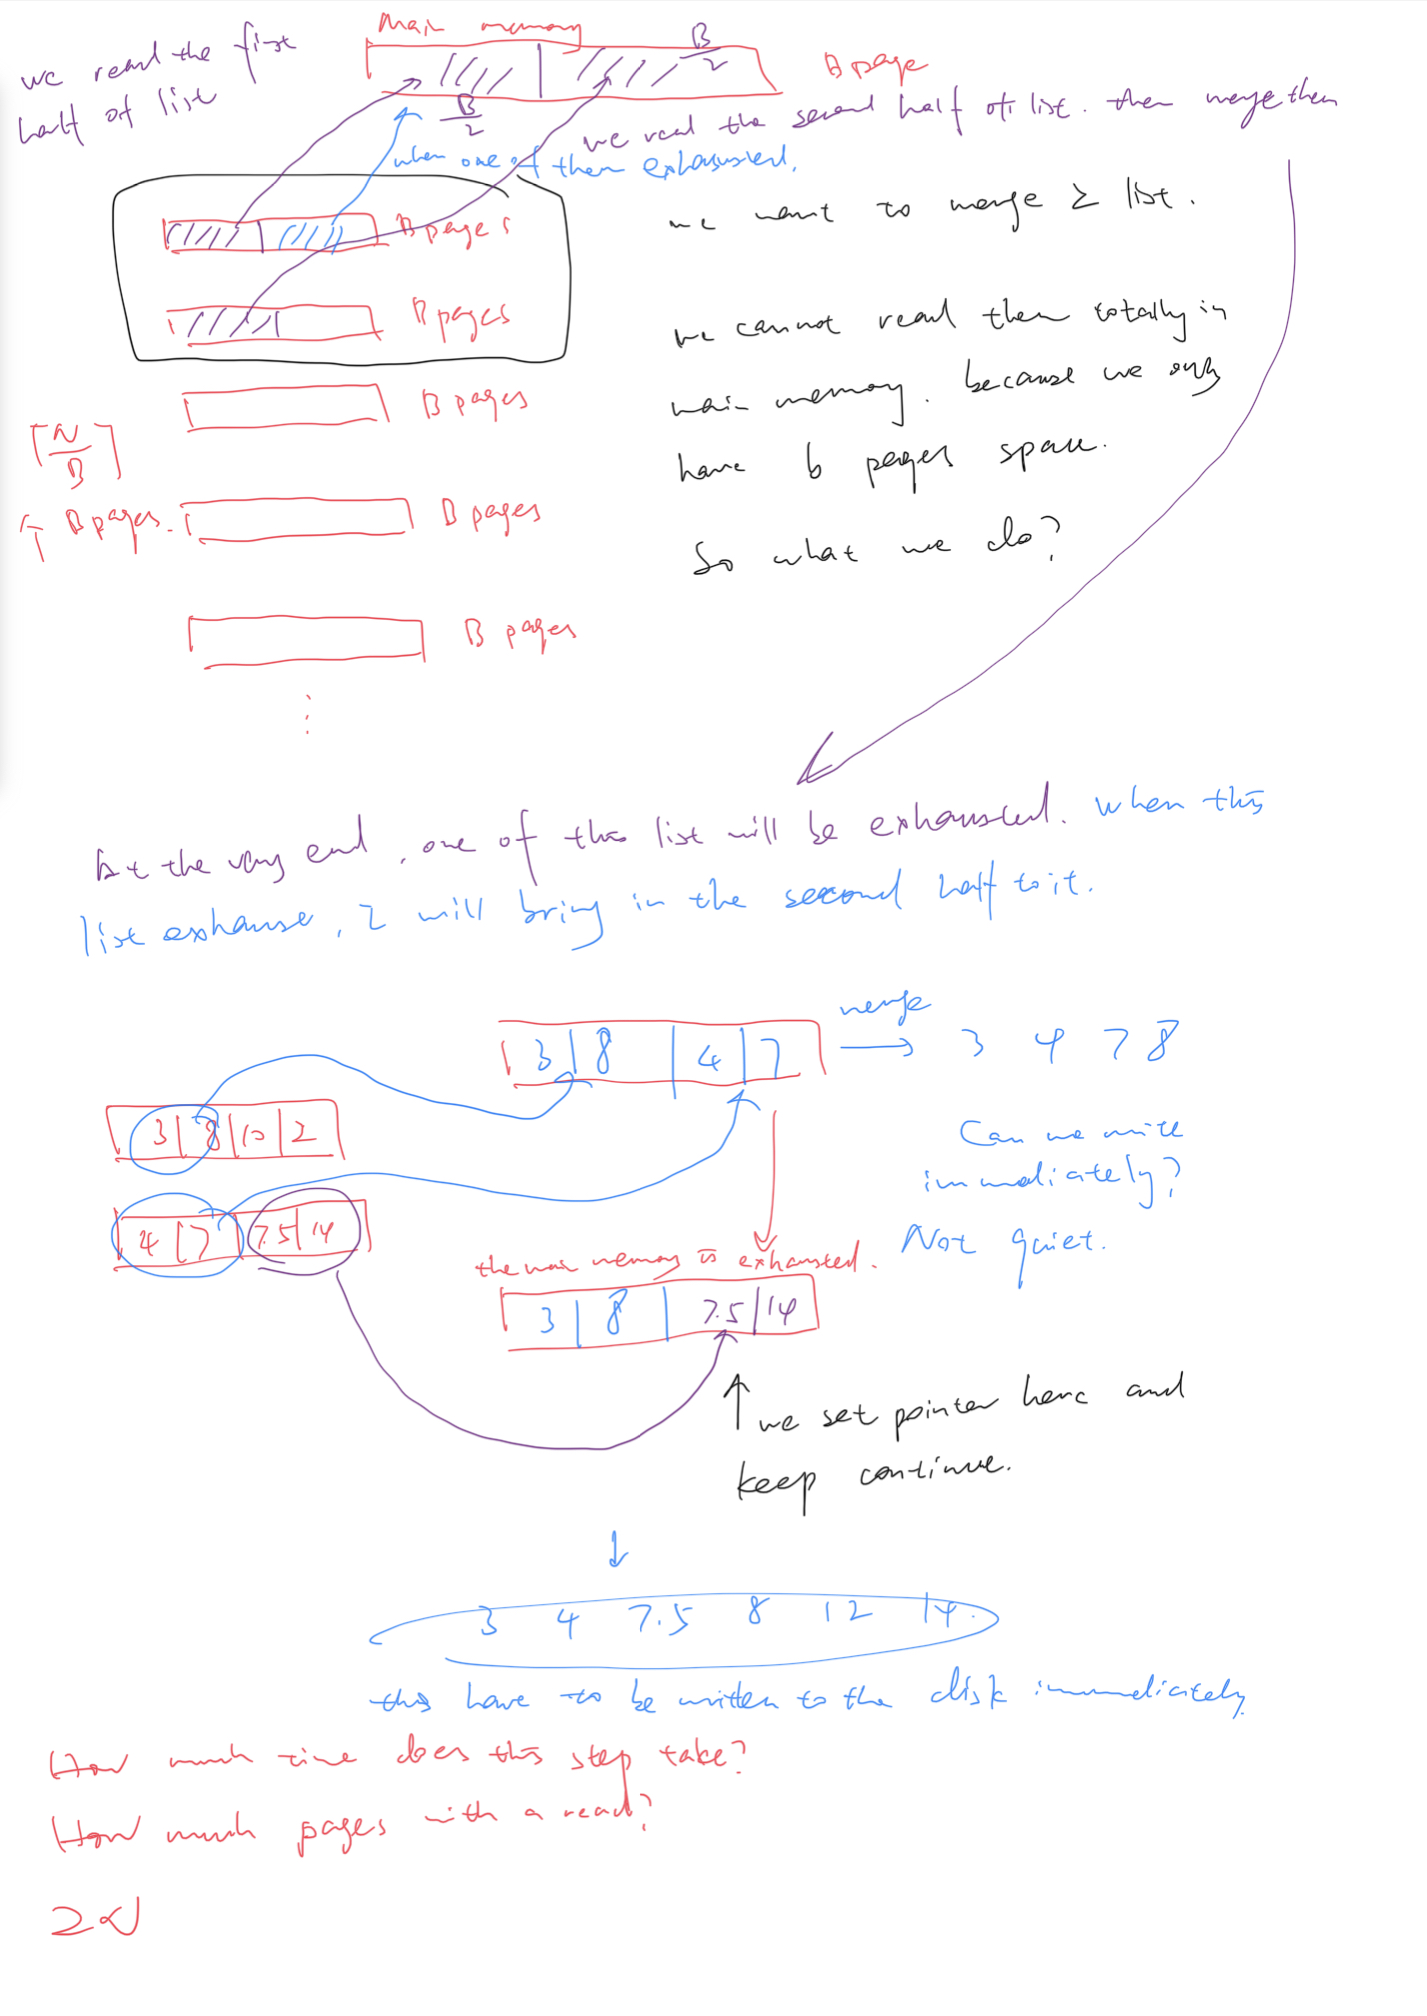 Main memory
we read the first
half of list
B/2
B/2
B page
we read the second half of list. then merge them
when one of them exhausted.
we want to merge 2 list.
B pages
B pages
we cannot read them totally in
main memory. because we only
have b pages space.
So what we do?
B pages
⌈N/B⌉
↑ B pages.
B pages
B pages
⋮
At the very end, one of this list will be exhausted. when this
list exhause, I will bring in the second half to it.
3 | 8 | 4 | 7
merge
→ 3 4 7 8
3 | 8 | 10 | 2
4 | 7 | 7.5 | 14
Can we write
immediately?
Not quiet.
the main memory is exhausted.
3 | 8 | 7.5 | 14
↑ we set pointer here and
keep continue.
↓
3 4 7.5 8 12 14.
this have to be written to the disk immediately
How much time does this step take?
How much pages with a read?
2N